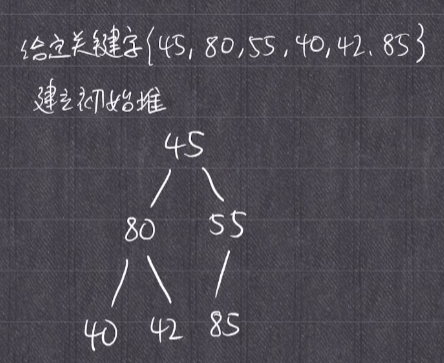 给定关键字{45, 80, 55, 40, 42, 85}
建立初始堆
45
80 55
40 42 85